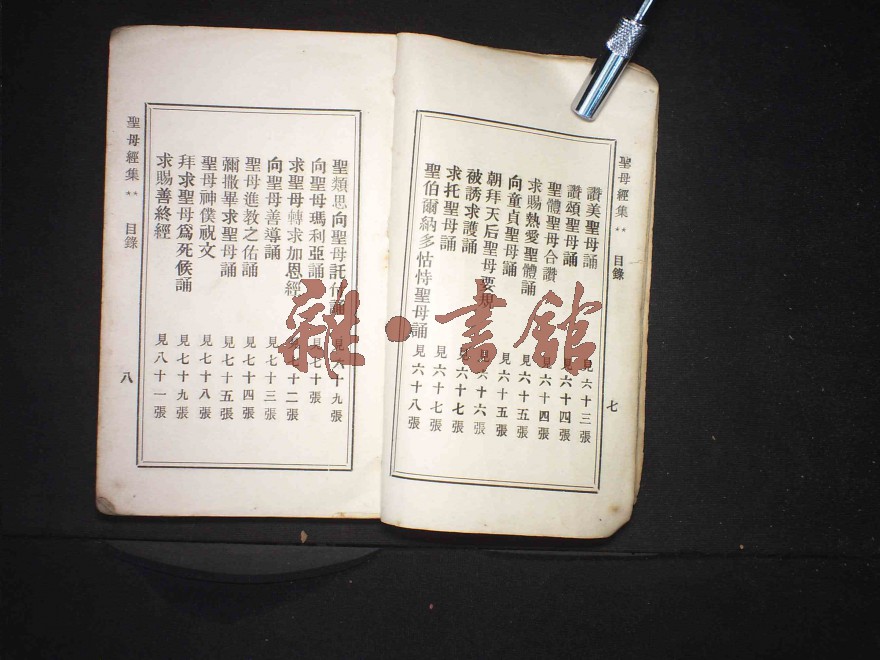 聖母經集 ** 目錄 七
讚美聖母誦 見六十三張
讚頌聖母誦 見六十四張
聖體聖母合讚 見六十四張
求賜熱愛聖體誦 見六十五張
向童貞聖母誦 見六十五張
朝拜天后聖母要規 見六十六張
被誘求護誦 見六十七張
求托聖母誦 見六十七張
聖伯爾納多怙恃聖母誦 見六十八張
聖類思向聖母託付誦 見六十九張
向聖母瑪利亞誦 見七十張
求聖母轉求加恩經 見七十二張
向聖母善導誦 見七十三張
聖母進教之佑誦 見七十四張
彌撒畢求聖母誦 見七十五張
聖母神僕祝文 見七十八張
拜求聖母爲死候誦 見七十九張
求賜善終經 見八十一張
聖母經集 ** 目錄 八
雜·書館